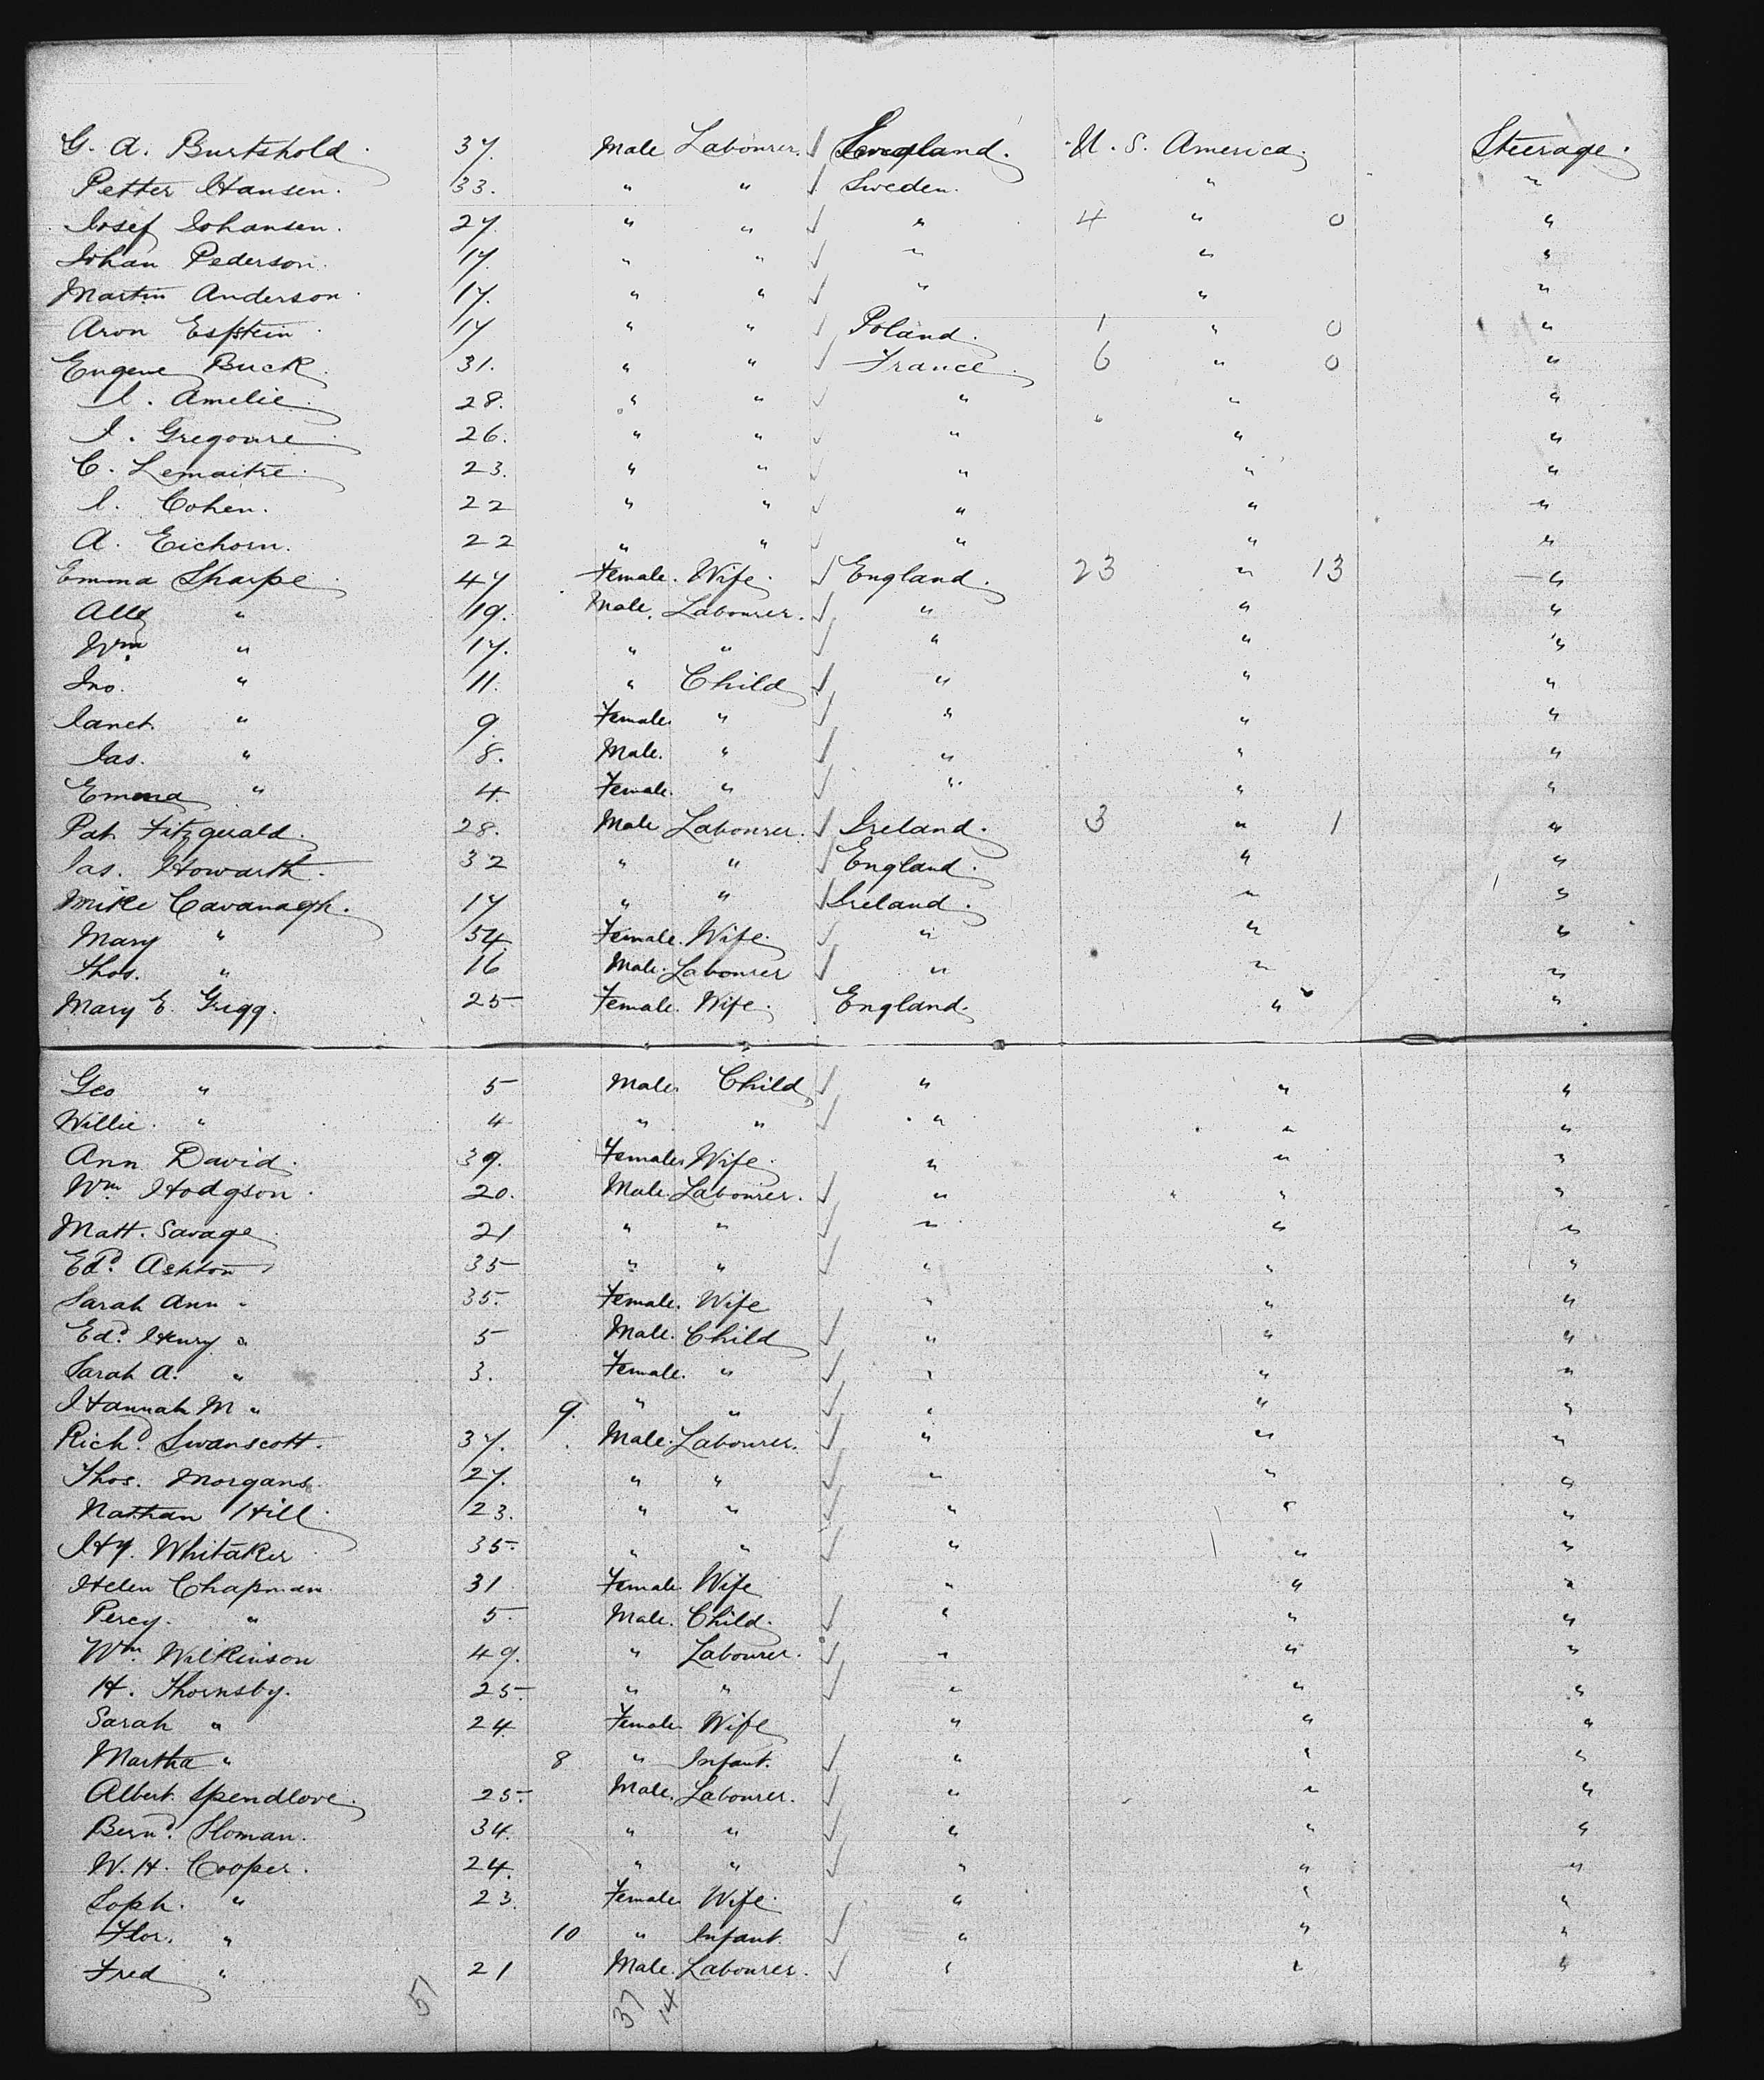 G. A. Burtshold. 37. Male Labourer. ✓ England. U. S. America. Steerage.
Petter Hansen. 33. " " ✓ Sweden. " "
Josef Johansen. 27. " " ✓ " 4 " 0 "
Johan Pederson. 17. " " ✓ " " "
Martin Anderson. 17. " " ✓ " " "
Aron Esfstein 17 " " ✓ Poland. 1 " 0 "
Eugene Buck. 31. " " ✓ France. 6 " 0 "
J. Amelie. 28. " " ✓ " " "
J. Gregoure 26. " " ✓ " " "
C. Lemaitre. 23. " " ✓ " " "
J. Cohen. 22 " " ✓ " " "
A. Eichorn. 22 " " ✓ " " "
Emma Sharpe. 47 Female. Wife. ✓ England. 23 " 13 "
Alf " 19. Male. Labourer. ✓ " " "
Wm " 17. " " ✓ " " "
Jno. " 11. " Child ✓ " " "
Janet. " 9. Female. " ✓ " " "
Jas. " 8. Male. " ✓ " " "
Emma " 4. Female. " ✓ " " "
Pat Fitzgerald. 28. Male Labourer. ✓ Ireland. 3 " 1 "
Jas. Howarth. 32 " " ✓ England. " "
Mike Cavanagh. 17 " " ✓ Ireland. " "
Mary " 54. Female. Wife. ✓ " " "
Thos. " 16 Male. Labourer ✓ " " "
Mary E. Grigg. 25 Female. Wife. England. " "
Geo " 5 Male. Child ✓ " " "
Willie. " 4 " " ✓ " " "
Ann David. 39. Female. Wife. " " "
Wm Hodgson. 20. Male. Labourer. ✓ " " "
Matt. Savage. 21 " " ✓ " " "
Edd. Ashton 35 " " ✓ " " "
Sarah Ann " 35. Female. Wife " " "
Edd. Henry " 5 Male. Child ✓ " " "
Sarah A. " 3. Female. " ✓ " " "
Hannah M " 9. " " ✓ " " "
Richd. Swanscott. 37. Male. Labourer. ✓ " " "
Thos. Morgans 27. " " ✓ " " "
Nathan Hill. 23. " " ✓ " " "
Hy. Whitaker 35. " " ✓ " " "
Helen Chapman 31 Female. Wife " " "
Percy. " 5. Male. Child. ✓ " " "
Wm. Wilkinson 49. " Labourer. ✓ " " "
H. Thornsby. 25. " " ✓ " " "
Sarah " 24 Female. Wife " " "
Martha " 8 " Infant. ✓ " " "
Albert Spendlove. 25. Male. Labourer. ✓ " " "
Bernd. Sloman. 34. " " ✓ " " "
W. H. Cooper. 24. " " ✓ " " "
Soph. " 23. Female. Wife. " " "
Flor. " 10 " Infant. ✓ " " "
Fred " 21 Male. Labourer. ✓ " " "
51 37 14